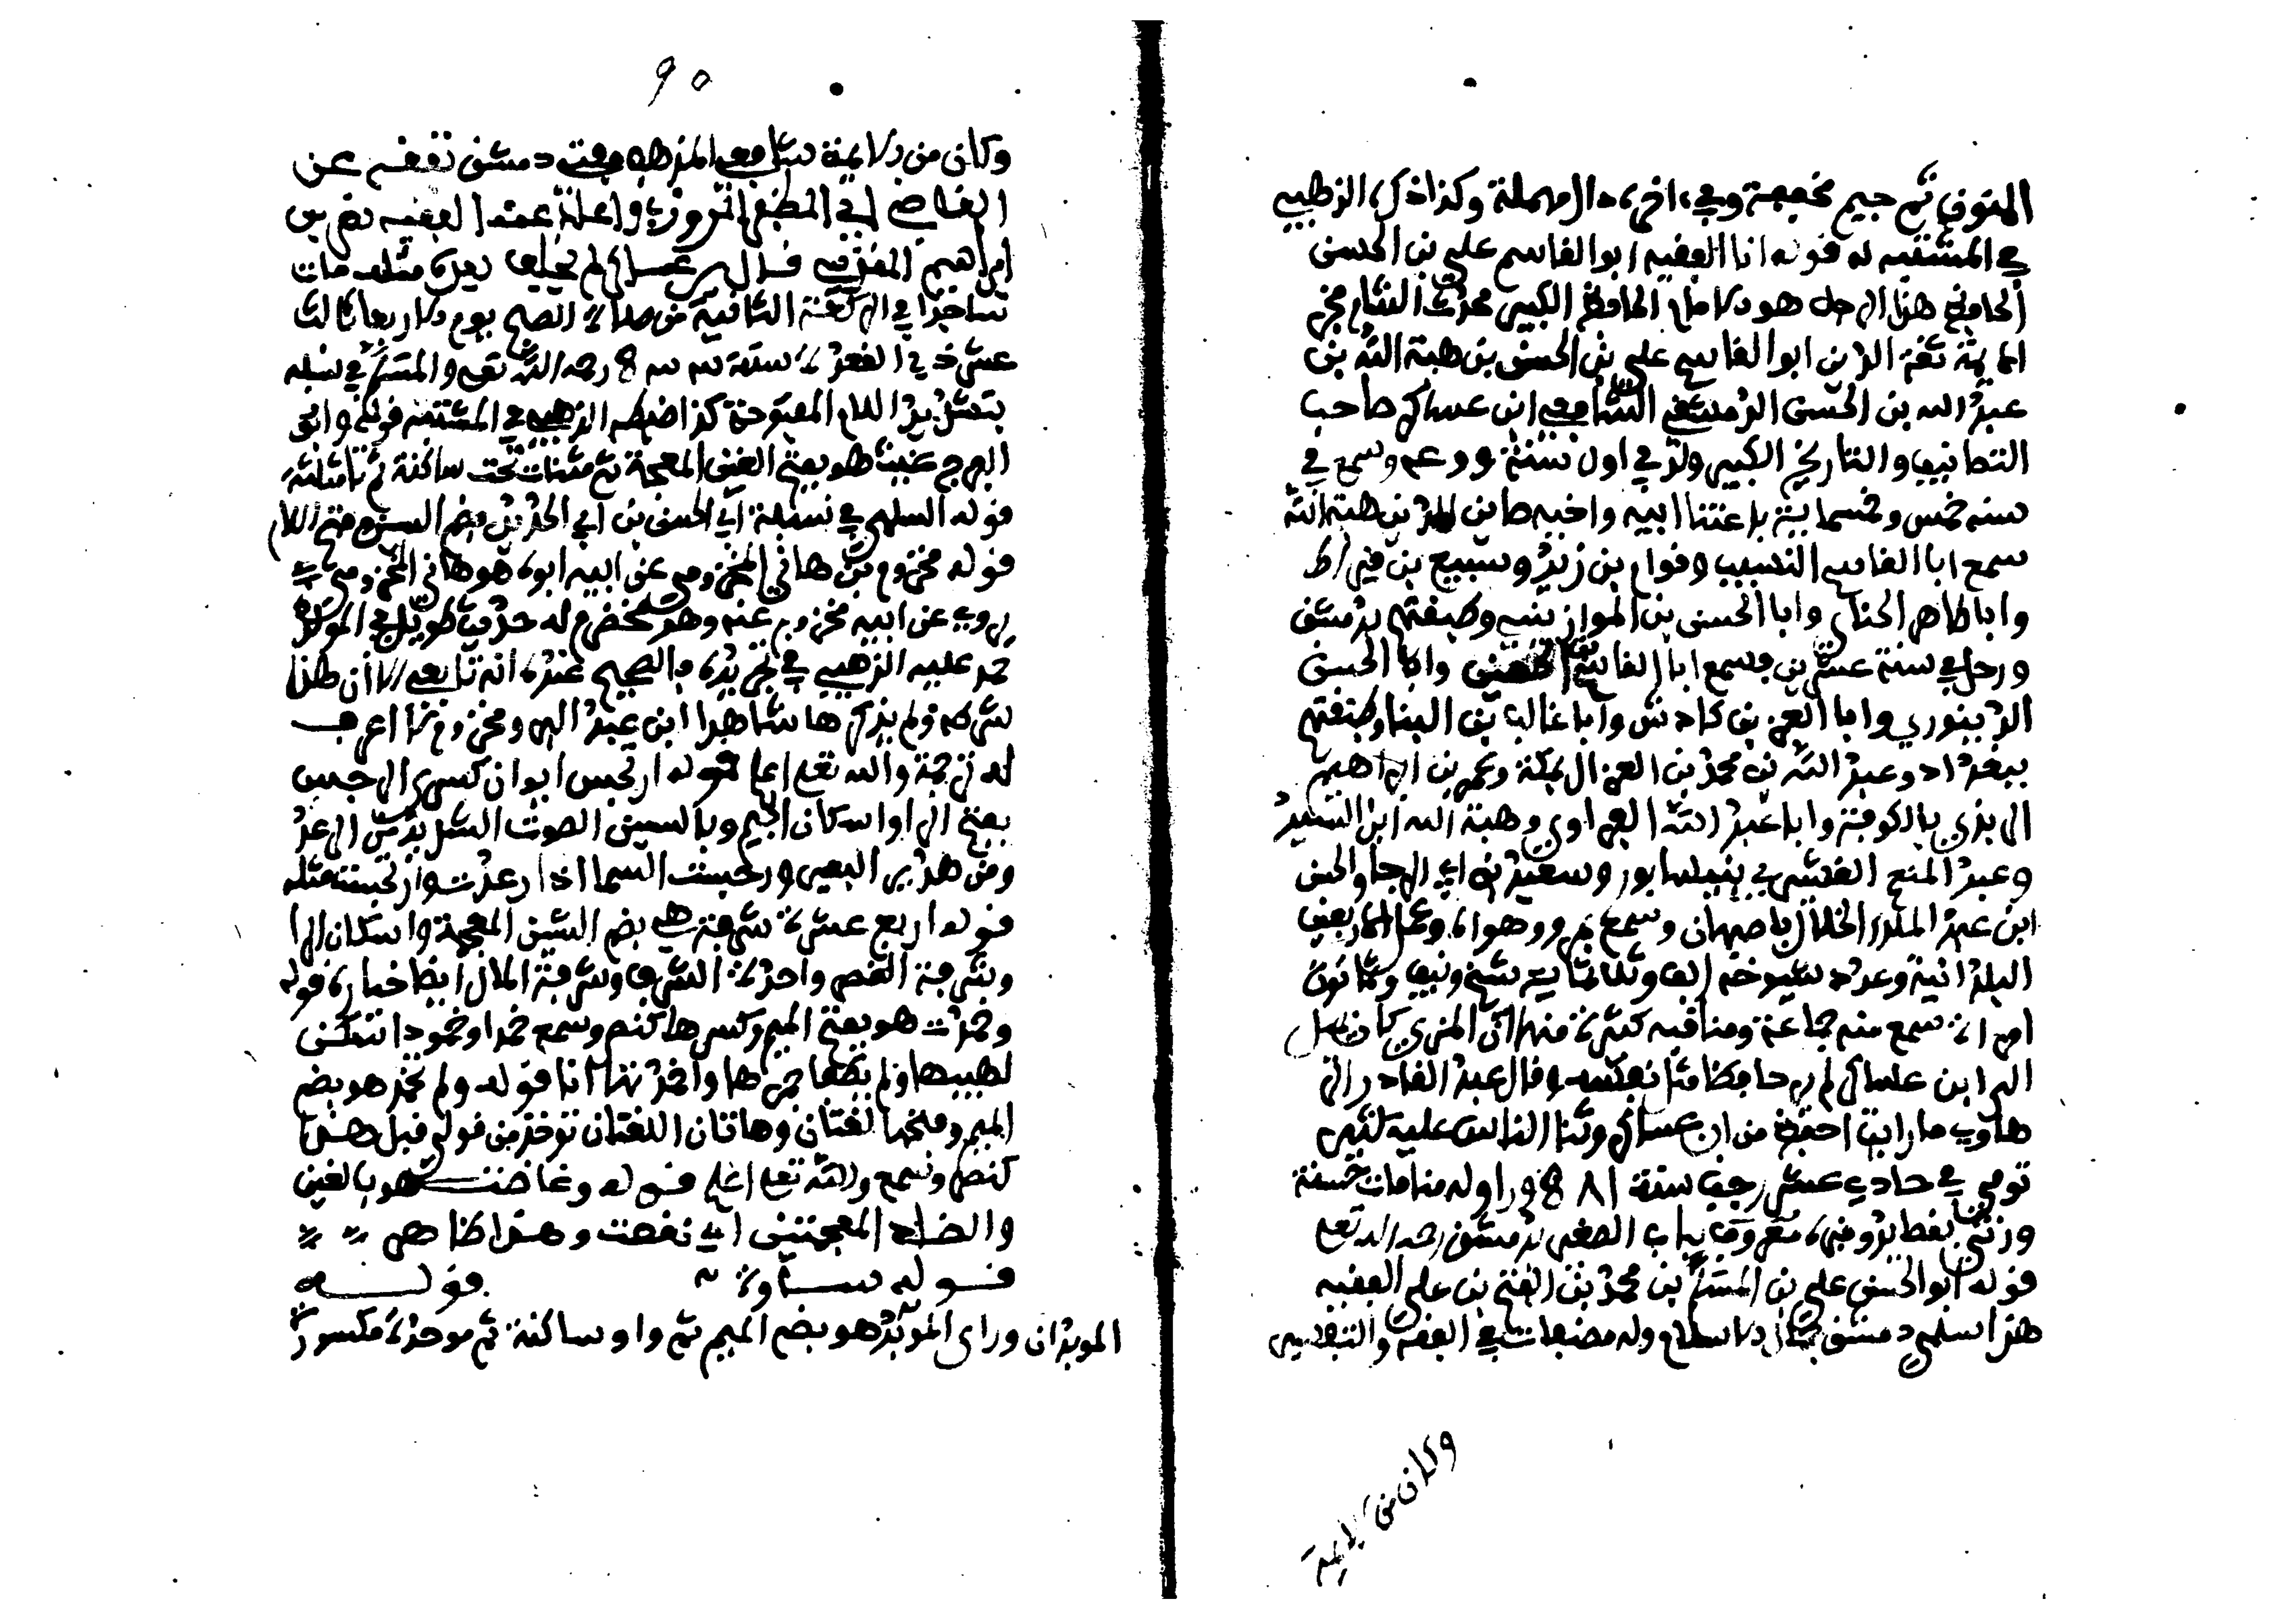 النون ثم جيم مخففة وفي اخره دال مهملة وكذا ذكره الذهبي
في المشتبه له قوله انا الفقيه ابو القاسم علي بن الحسن
الحافظ هذا الرجل هو الامام الحافظ الكبير محدث الشام فخر
الايمة ثقة الدين ابو القاسم علي بن الحسن بن هبة الله بن
عبد الله بن الحسن الدمشقي الشافعي ابن عساكر صاحب
التصانيف والتاريخ الكبير ولد في اول سنة وسمع في
سنة خمس وخمسماية باعتنا ابيه واخيه صاين الدين هبة الله
سمع ابا القاسم النسيب وقوام بن زيد وسبيع بن قيراط
وابا طاهر الحناي وابا الحسن بن الموازيني وطبقتهم بدمشق
ورحل في سنة عشرين وسمع ابا القاسم بن الحصين وابا الحسن
الدينوري وابا العز بن كادش وابا غالب بن البنا وطبقتهم
ببغداد وعبد الله بن محمد بن الغزال بمكة وعمر بن ابراهيم
الزيدي بالكوفة وابا عبد الله الفراوي وهبة الله ابن السيد
وعبد المنعم القشيري بنيسابور وسعيد بن ابي الرجا والحسن
ابن عبد الملك الخلال باصبهان وسمع بمرو وهراه وعمل الاربعين
البلدانية وعدد شيوخه الف وثلاثماية شيخ ونيف وثمانون
امراة سمع منه جماعة ومناقبه كثيرة منها ان المزي كان يميل
الى ابن عساكر لم ير حافظا مثل نفسه وقال عبد القادر الر
هاوي ما رايت احفظ من ابن عساكر وثنا الناس عليه كثير
توفي في حادي عشر رجب سنة وله منامات حسنة
معروف بباب الصغير بدمشق رحمه الله تعلى
قوله ابو الحسن علي بن المسلم بن محمد بن الفتح بن علي الفقيه
هذا سلمي دمشقي جمال الاسلام وله مصنفات في الفقه والتفسير
وكان من الايمة
٩٥
وكان من الايمة شافعي المذهب مفتي دمشق تفقه عن
القاضي ابي المظفر المروزي واعاد عند الفقيه نصر بن
ابراهيم المقدسي قال ابن عساكر لم يخلف بعده مثله مات
ساجدا في الركعة الثانية من صلاة الصبح يوم الاربعا ثالث
عشر ذي القعدة سنة رحمه الله تعلى والمسلم في نسبه
بتشديد اللام المفتوحة كذا ضبطه الذهبي في المشتبه قوله وابى
الفرج غيث هو بفتح الغين المعجمة ثم مثنات تحت ساكنة ثم ثا مثلثة
قوله السلمي في نسبة ابي الحسن بن ابي الحديد بضم السين وفتح اللام
قوله مخزوم بن هاني المخزومي عن ابيه ابوه هو هاني المخزومي
يروي عن ابيه مخزوم عنه وهو مخضرم له حديث طويل في المولد
حمر عليه الذهبي في تجريده والصحيح عنده انه تابعي الا ان هذا
شرطه ولم يذكر هانيا ابن عبد البر ومخزوم ما اعرف
له ترجمة والله تعلى اعلم قوله ارتجس ايوان كسرى الرجس
بفتح الرا واسكان الجيم وبالسين الصوت الشديد من الرعد
ومن هدير البعير ورجست السما اذا رعدت وارتجست مثله
قوله اربع عشرة شرفة هي بضم الشين المعجمة واسكان الرا
وشرفة القصر واحدة الشرف وشرفة المال ايضا خياره قوله
وخمدت هو بفتح الميم وكسرها كنصر وسمع خمدا وخمودا اذا سكن
لهيبها ولم يطفا جمرها واخمدتها انا قوله ولم تخمد هو بضم
الميم وفتحها لغتان وهاتان اللغتان توخذ من قولي قبل هذا
كنصر وسمع والله تعلى اعلم قوله وغاضت هو بالغين
والضاد المعجمتين اي نقصت وهذا ظاهر
قوله ساوة قوله
الموبذان وراى الموبذ هو بضم الميم ثم واو ساكنة ثم موحدة مكسورة